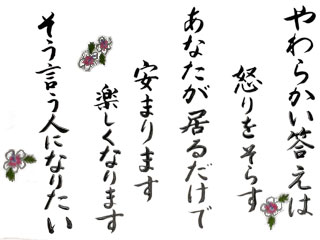 やわらかい答えは
怒りをそらす
あなたが居るだけで
安まります
楽しくなります
そう言う人になりたい